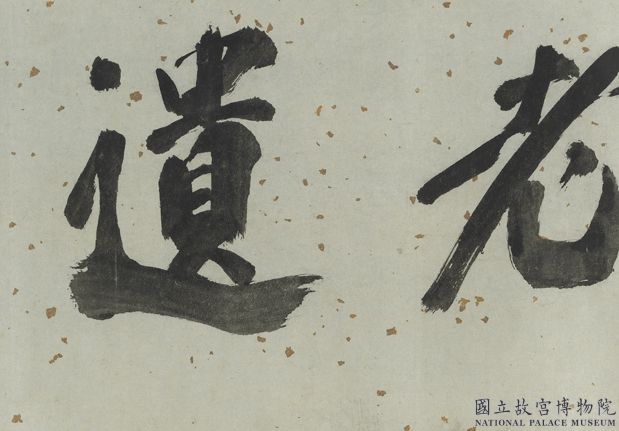 老遺
國立故宮博物院
NATIONAL PALACE MUSEUM